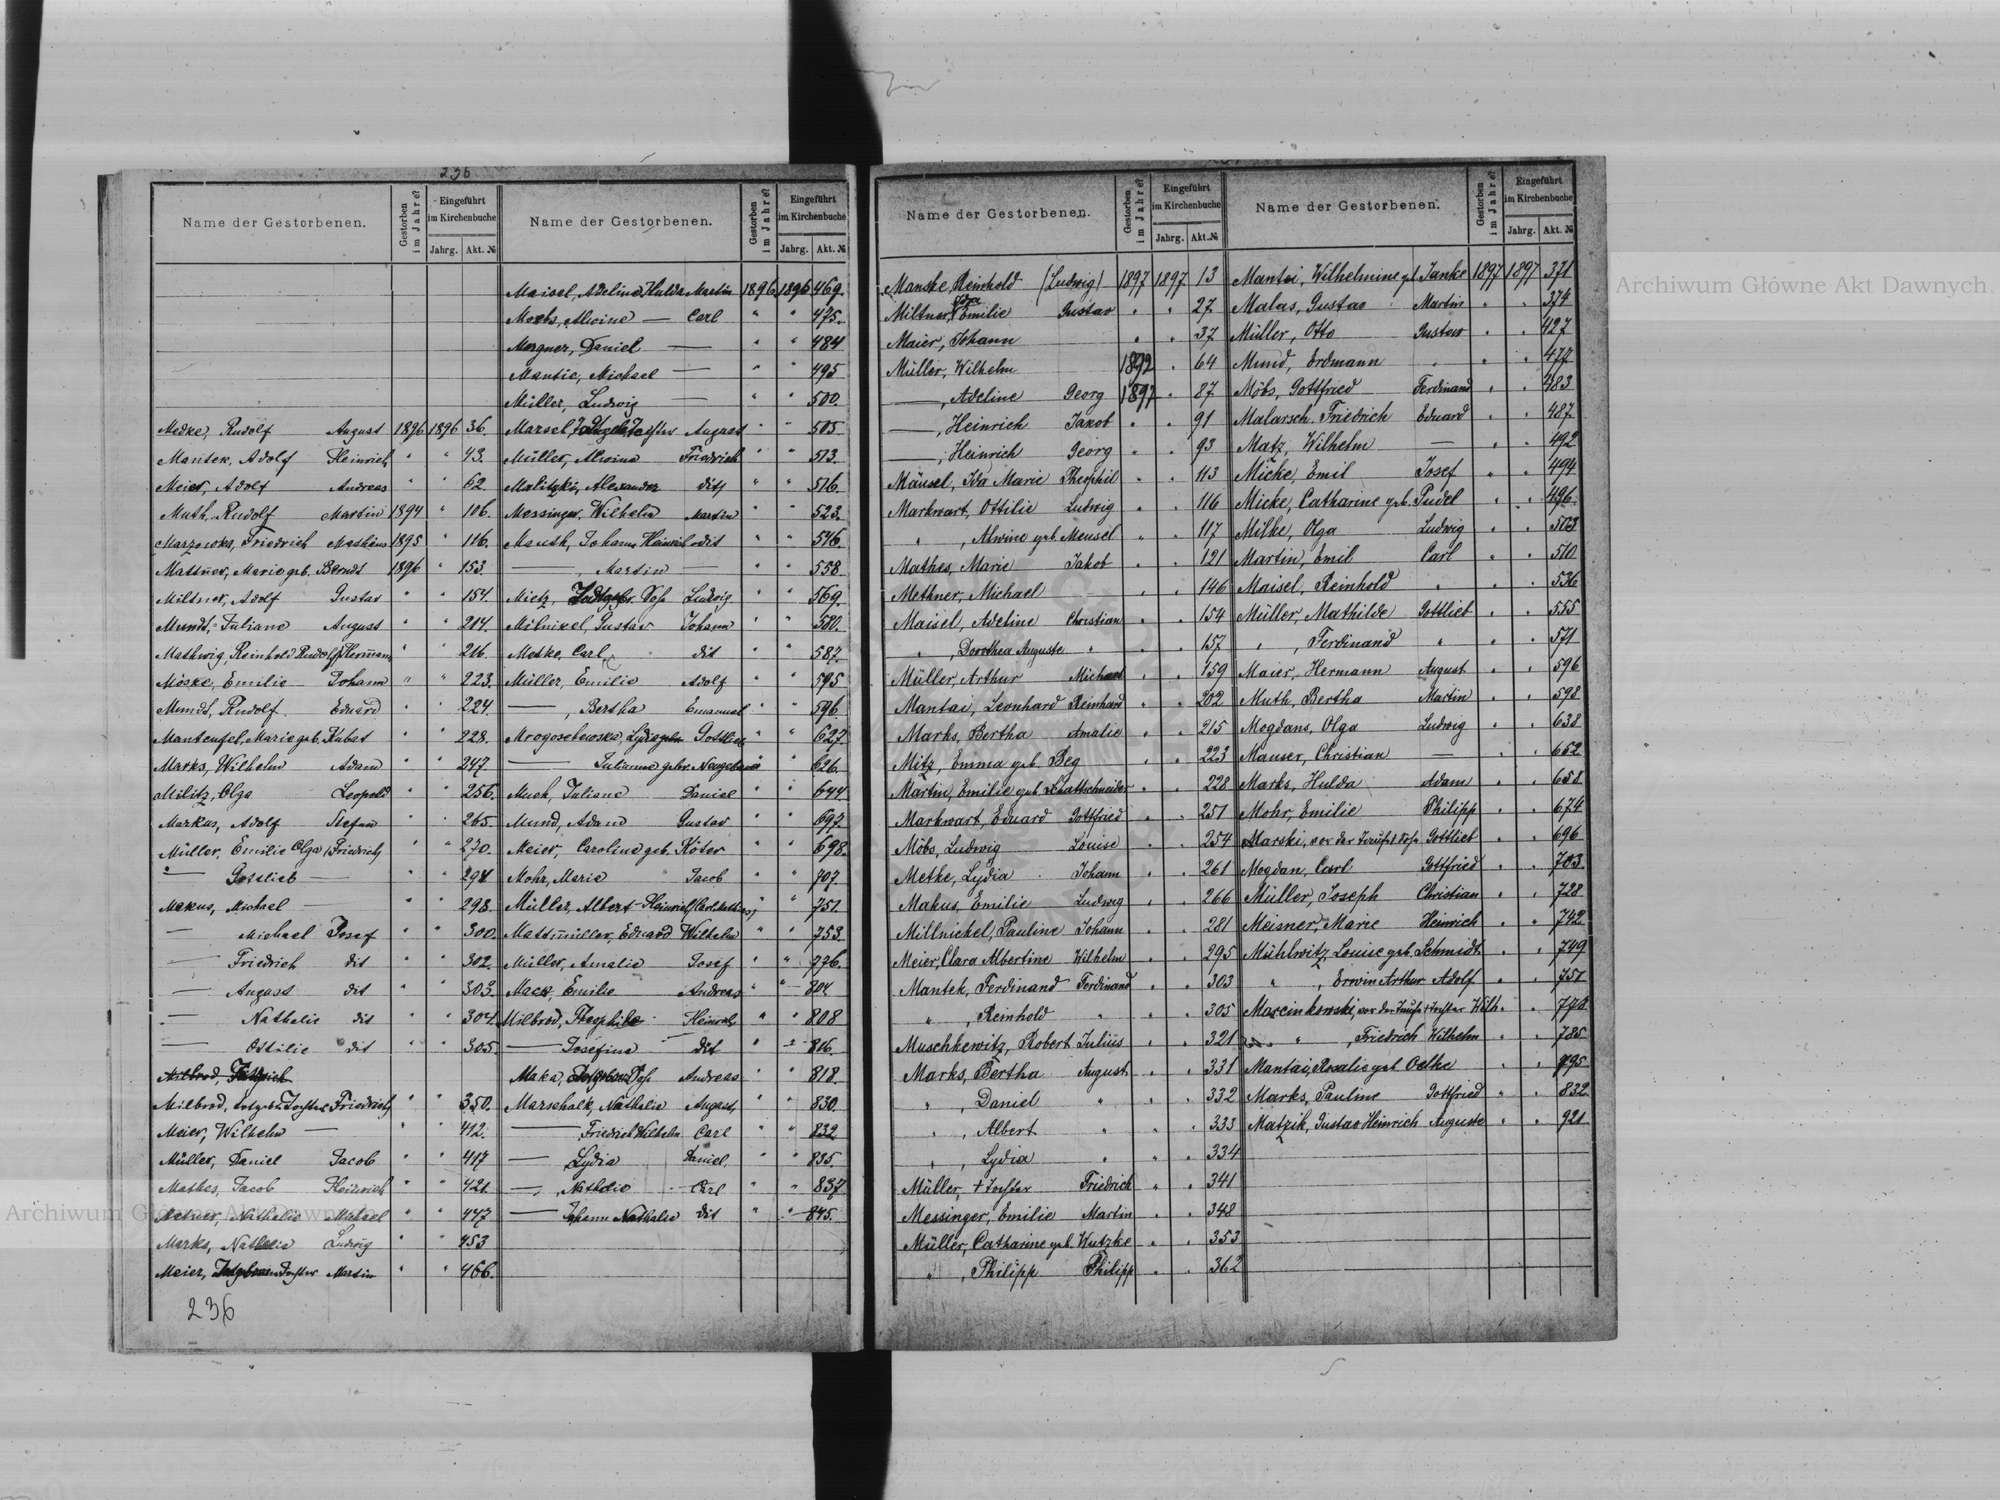 236
Name der Gestorbenen.
Gestorben im Jahre?
Eingeführt im Kirchenbuche
Jahrg.
Akt. №
Medke, Rudolf August 1896 1896 36.
Mantek, Adolf Heinrich " " 43.
Meier, Adolf Andreas " " 62.
Muth, Rudolf Martin 1894 " 106.
Friedrich Mathäus 1895 " 116.
Marie geb. Berndt 1896 " 153.
Miltner, Adolf Gustav " " 154.
Mundt, Juliane August " " 214.
Mathwig, Reinhold Rudolf Hermann " " 216.
Möske, Emilie Johann " " 223.
Mundt, Rudolf Eduard " " 224.
Manteufel, Marie geb. Kubat " " 228.
Marks, Wilhelm Adam " " 247
Militz, Olga Leopold " " 256.
Markus, Adolf Stefan " " 265.
Müller, Emilie Olga Friedrich " " 270.
— Gottlieb — " " 291.
Makus, Michael — " " 298.
— Michael Josef " " 300.
— Friedrich dit " " 302.
— August dit " " 303.
— Nathalie dit " " 304.
— Ottilie dit " " 305.
Milbrod,
Milbrod, Totgeb. Tochter Friedrich " " 350.
Meier, Wilhelm — " " 412.
Müller, Daniel Jacob " " 417
Mathes, Jacob Heinrich " " 421.
Metner, Nathalie Michael " " 447
Marks, Nathalie Ludwig " " 453
Meier, Martin " " 466.
236
Name der Gestorbenen.
Gestorben im Jahre?
Eingeführt im Kirchenbuche
Jahrg.
Akt. №
Maisel, Adeline Hulda Martin 1896 1896 469.
Moebs, Alwine — Carl " " 475.
Daniel — " " 484
Mantie, Michael — " " 495
Müller, Ludwig — " " 500.
August " " 505.
Müller, Alwine Friedrich " " 513.
Malitzki, Alexander dit " " 516.
Messinger, Wilhelm Martin " " 523.
Johann Heinrich dit " " 546.
—, Martin — " " 558.
Mietz, Ludwig " " 569.
Milnikel, Gustav Johann " " 580.
Metke, Carl dit " " 587.
Müller, Emilie Adolf " " 595
—, Bertha Emanuel " " 596.
Gottlieb " " 627.
— Julianne gebor. " " 626.
Juliane Daniel " " 644
Mund, Adam Gustav " " 697.
Meier, Caroline geb. Köter " " 698.
Mohr, Marie Jacob " " 707.
Müller, Albert Heinrich " " 751.
Eduard Wilhelm " " 753.
Müller, Amalie Josef " " 776.
Mack, Emilie Andreas " " 804
Milbrod, Theophile Heinrich " " 808
— Josefine dit " " 816.
Maka, Andreas " " 818.
Marschalk, Nathalie August " " 830.
— Friedrich Wilhelm Carl " " 832
— Lydia Daniel " " 835.
—, Nathalie Carl " " 837
— Johann Nathalie dit " " 845.
Name der Gestorbenen.
Gestorben im Jahre?
Eingeführt im Kirchenbuche
Jahrg.
Akt. №
Manske, Reinhold (Ludwig) 1897 1897 13
Miltner, Emilie Gustav " " 27
Maier, Johann " " 37
Müller, Wilhelm 1892 " 64
—, Adeline Georg 1897 " 87
—, Heinrich Jakob " " 91
—, Heinrich Georg " " 93
Mäusel, Ida Marie Theophil " " 113
Markwart, Ottilie Ludwig " " 116
" , Alwine geb. Meusel " " 117
Mathes, Marie Jakob " " 121
Methner, Michael " " 146
Maisel, Adeline Christian " " 154
" , Dorothea Auguste " " " 157
Müller, Arthur Michael " " 159
Mantai, Leonhard Reinhard " " 202
Marks, Bertha Amalie " " 215
Mitz, Emma geb. Beg " " 223
Martin, Emilie geb. Schattschneider " " 228
Markwart, Eduard Gottfried " " 251
Möbs, Ludwig Louise " " 254
Metke, Lydia Johann " " 261
Makus, Emilie Ludwig " " 266
Millnickel, Pauline Johann " " 281
Meier, Clara Albertine Wilhelm " " 295
Mantek, Ferdinand Ferdinand " " 303
" , Reinhold " " " 305
Muschkewitz, Robert Julius " " 321
Marks, Bertha August " " 331
" , Daniel " " " 332
" , Albert " " " 333
" , Lydia " " " 334
Müller, † Tochter Friedrich " " 341
Messinger, Emilie Martin " " 348
Müller, Catharine geb. Kutzke " " 353
" , Philipp Philipp " " 362
Name der Gestorbenen.
Gestorben im Jahre?
Eingeführt im Kirchenbuche
Jahrg.
Akt. №
Mantai, Wilhelmine geb. Janke 1897 1897 371
Malas, Gustav Martin " " 374
Müller, Otto Gustav " " 427
Mund, Erdmann " " " 477
Möbs, Gottfried Ferdinand " " 483
Malarsch, Friedrich Eduard " " 487
Matz, Wilhelm — " " 492
Micke, Emil Josef " " 494
Micke, Catharine geb. Pudel " " 496
Milke, Olga Ludwig " " 503
Martin, Emil Carl " " 510
Maisel, Reinhold " " " 536
Müller, Mathilde Gottlieb " " 555
" , Ferdinand " " " 571
Maier, Hermann August " " 596
Muth, Bertha Martin " " 598
Mogdans, Olga Ludwig " " 638
Mauser, Christian — " " 652
Marks, Hulda Adam " " 658
Mohr, Emilie Philipp " " 674
Marski, vor der Taufe † Sohn Gottlieb " " 696
Mogdan, Carl Gottfried " " 703
Müller, Joseph Christian " " 728
Meisner, Marie Heinrich " " 742
Mühlwitz, Louise geb. Schmidt " " 749
" , Erwin Arthur Adolf " " 751
Marcinkowski, vor der Taufe † Tochter Wilh. " " 778
" , Friedrich Wilhelm " " 785
Mantai, Rosalie geb. Oelke " " 795
Marks, Pauline Gottfried " " 832
Matzik, Gustav Heinrich Auguste " " 921
Archiwum Główne Akt Dawnych
Archiwum Główne Akt Dawnych